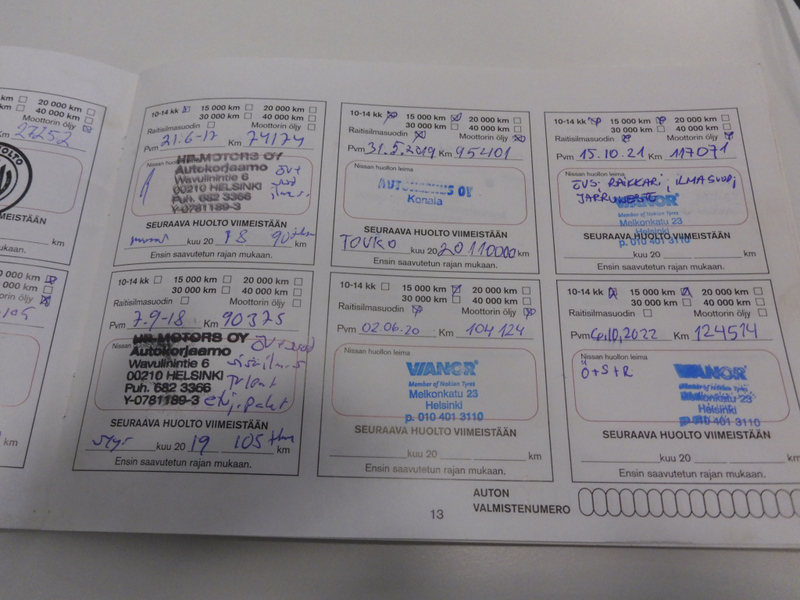 20 000 km
40 000 km
Moottorin öljy
Km 27252
HUOLTO
VIIMEISTÄÄN
km
mukaan.
10-14 kk 15 000 km 20 000 km
30 000 km 40 000 km
Raitisilmasuodin Moottorin öljy
Pvm 21.6-17 Km 74174
Nissan huollon
HP-MOTORS OY
Autokorjaamo
Wavulinintie 6
00210 HELSINKI
Puh. 682 3366
Y-0781189-3
SEURAAVA HUOLTO VIIMEISTÄÄN
kuu 20 18 90 tkm
Ensin saavutetun rajan mukaan.
10-14 kk 15 000 km 20 000 km
30 000 km 40 000 km
Raitisilmasuodin Moottorin öljy
Pvm 7.9-18 Km 90375
Nissan
HP-MOTORS OY
Autokorjaamo
Wavulinintie 6
00210 HELSINKI
Puh. 682 3366
Y-0781189-3
SEURAAVA HUOLTO VIIMEISTÄÄN
syys kuu 20 19 105 tkm km
Ensin saavutetun rajan mukaan.
10-14 kk 15 000 km 20 000 km
30 000 km 40 000 km
Raitisilmasuodin Moottorin öljy
Pvm 31.5.2019 Km 95401
Nissan huollon leima
OY
Konala
SEURAAVA HUOLTO VIIMEISTÄÄN
TOUKO kuu 20 20 110000 km
Ensin saavutetun rajan mukaan.
10-14 kk 15 000 km 20 000 km
30 000 km 40 000 km
Raitisilmasuodin Moottorin öljy
Pvm 02.06.20 Km 104124
Nissan huollon leima
VIANOR
Member of Nokian Tyres
Melkonkatu 23
Helsinki
p. 010 401 3110
SEURAAVA HUOLTO VIIMEISTÄÄN
kuu 20 km
Ensin saavutetun rajan mukaan.
10-14 kk 15 000 km 20 000 km
30 000 km 40 000 km
Raitisilmasuodin Moottorin öljy
Pvm 15.10.21 Km 117071
Nissan huollon leima
ÖVS; RAIKKARI; ILMASUOD;
JARRUNESTE
VIANOR
Member of Nokian Tyres
Melkonkatu 23
Helsinki
SEURAAVA HUOLTO VIIMEISTÄÄN
p. 010 401 3110
kuu 20 km
Ensin saavutetun rajan mukaan.
10-14 kk 15 000 km 20 000 km
30 000 km 40 000 km
Raitisilmasuodin Moottorin öljy
Pvm 60.10,2022 Km 124514
Nissan huollon leima
Ö+S+R
VIANOR
Member of Nokian Tyres
Melkonkatu 23
Helsinki
p. 010 401 3110
SEURAAVA HUOLTO VIIMEISTÄÄN
kuu 20 km
Ensin saavutetun rajan mukaan.
13
AUTON
VALMISTENUMERO